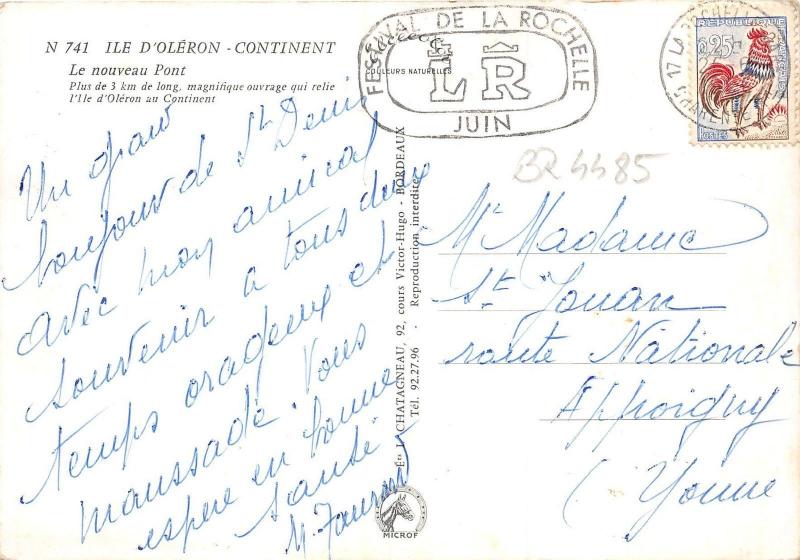 N 741 ILE D'OLÉRON - CONTINENT
Le nouveau Pont
Plus de 3 km de long, magnifique ouvrage qui relie
l'Ile d'Oléron au Continent
COULEURS NATURELLES
FESTIVAL DE LA ROCHELLE
LR
JUIN
17 LA ROCHELLE
CHARENTE
RÉPUBLIQUE
0,25
POSTES
BR 4485
Un grand
bonjour de St Denis
avec mon amical
souvenir à tous deux
temps orageux et
maussade. Vous
espère en bonne
santé
Éts CHATAGNEAU, 92, cours Victor-Hugo - BORDEAUX
Tél. 92.27.96 - Reproduction interdite
MICROF
Mr Madame
St Jouan
route Nationale
Appoigny
(Yonne